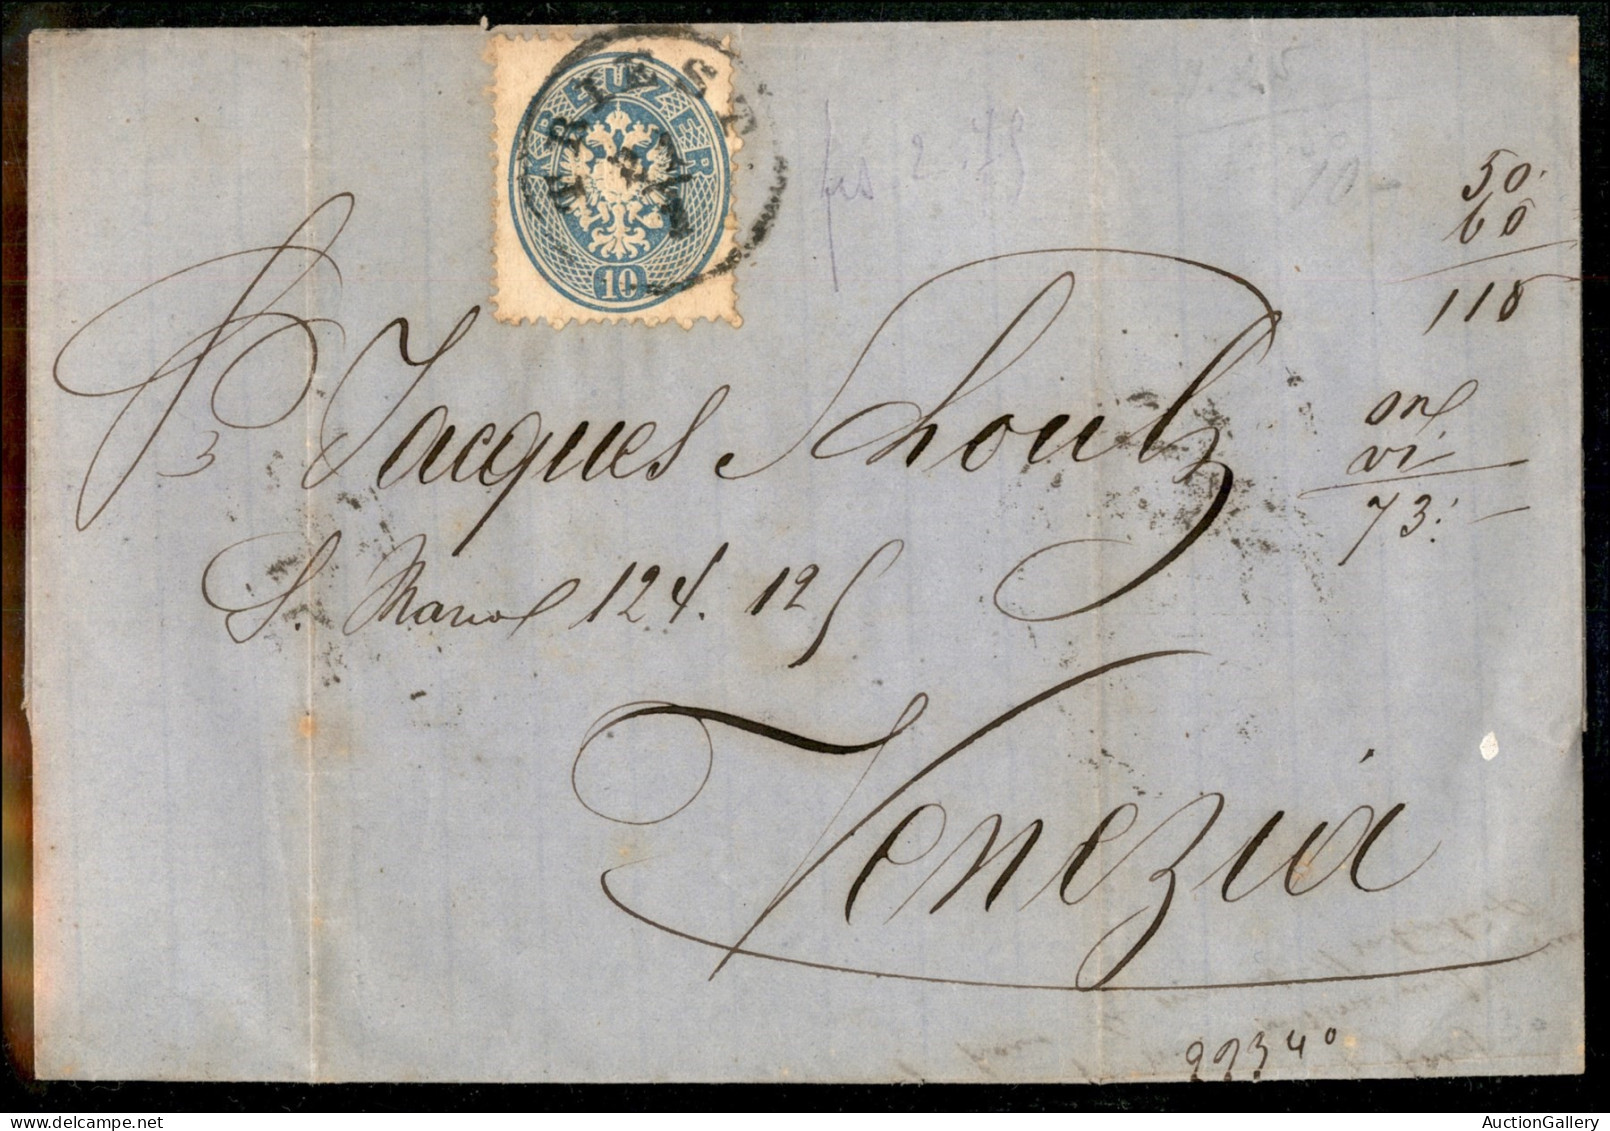 KREUZER
10
TRIEST
50.
60
110
73.
Jacques Shoulz
S. Marco 124. 125
Venezia
29340
AuctionGallery